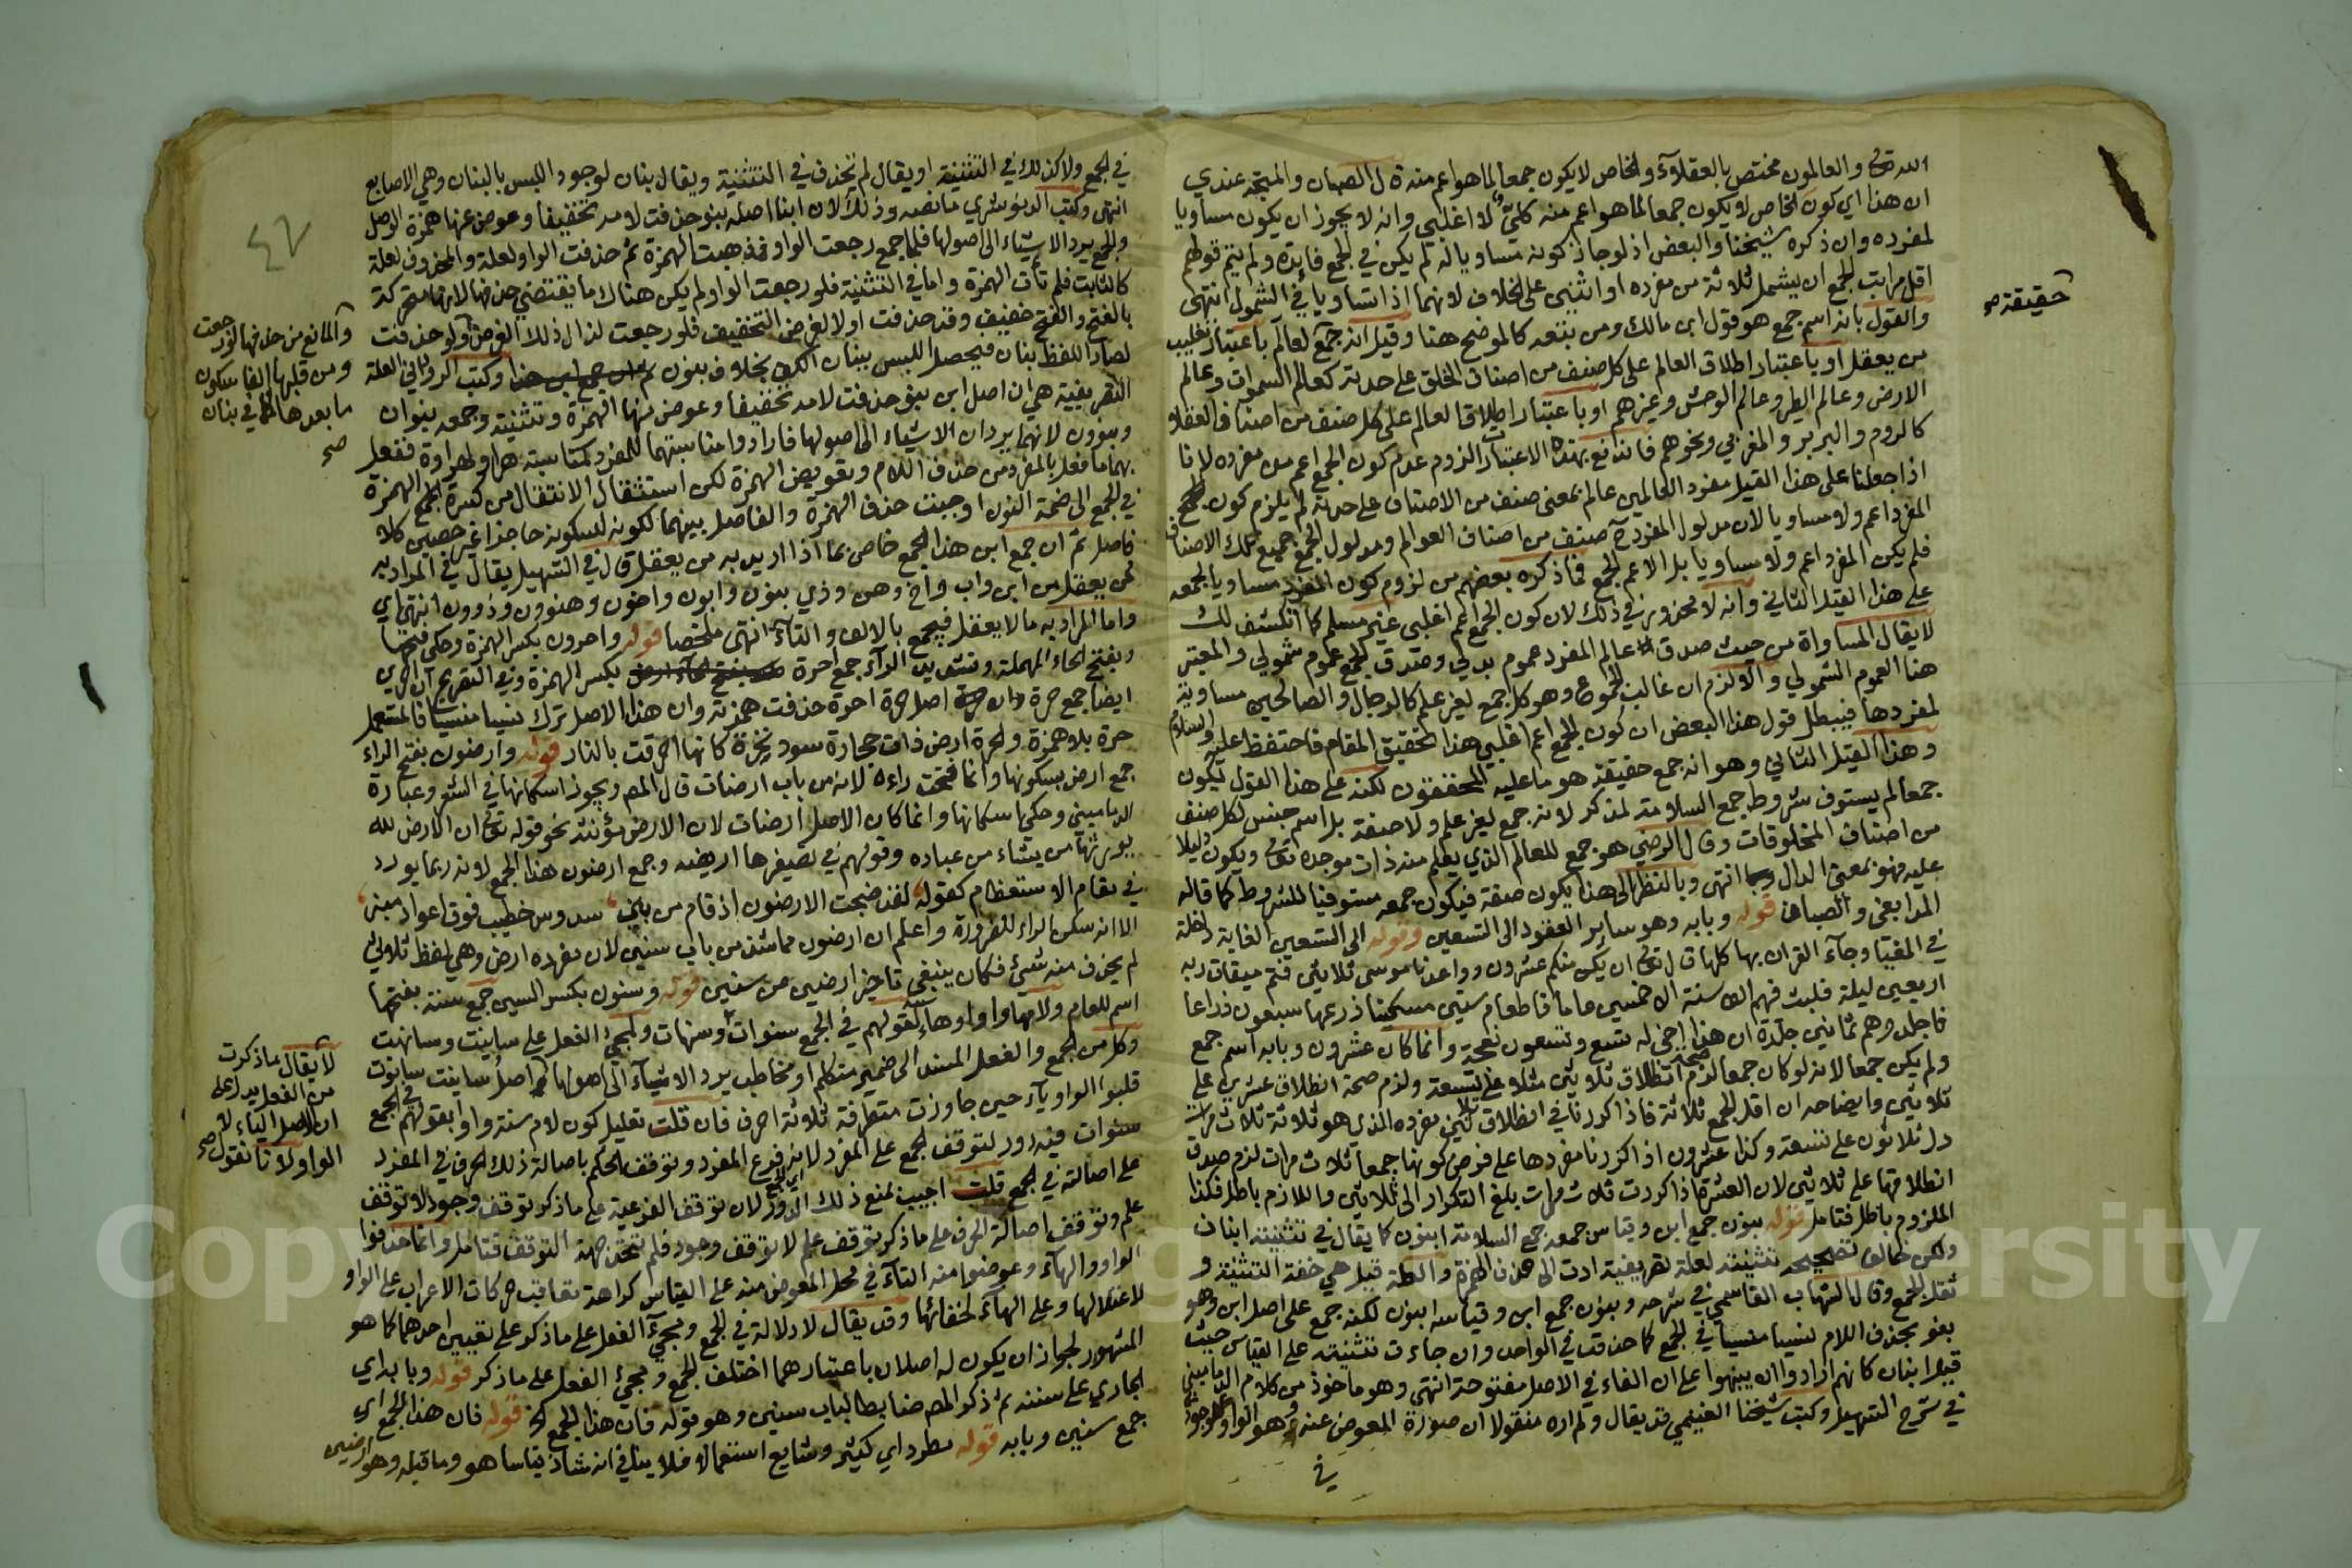 الله تعالى والعالمون مختص بالعقلاء والخاص لا يكون جمعا لما هو اعم منه قال الصبان والمتجه عندي
ان هذا اي كون الخاص لا يكون جمعا لما هو اعم منه كلي لا اغلبي وانه لا يجوز ان يكون مساويا
لمفرده وان ذكره شيخنا والبعض اذ لو جاز كونه مساويا له لم يكن في الجمع فايدة ولم يتم قولهم
اقل مراتب الجمع ان يشمل ثلاثة من مفرده او اثنين على الخلاف لانهما اذا تساويا في الشمول انتهى
والقول بانه اسم جمع هو قول ابن مالك ومن تبعه كالموضح هنا وقيل انه جمع لعالم باعتبار تغليب
من يعقل او باعتبار اطلاق العالم على كل صنف من اصناف الخلق على حدته كعالم السموات وعالم
الارض وعالم الطير وعالم الوحش وغيرهم او باعتبار اطلاق العالم على كل صنف من اصناف العقلاء
كالروم والبربر والمغربي ونحوهم فاندفع بهذه الاعتبارات لزوم عدم كون الجمع اعم من مفرده لانا
اذا جعلنا على هذا القيل مفرد العالمين عالم بمعنى صنف من الاصناف على حدته لم يلزم كون
المفرد اعم ولا مساويا لان مدلول المفرد ح صنف من اصناف العوالم ومدلول الجمع جميع تلك الاصناف
فلم يكن المفرد اعم ولا مساويا بل الاعم الجمع فما ذكره بعضهم من لزوم كون المفرد مساويا لجمعه
على هذا القيل الثاني وانه لا محذور في ذلك لان كون الجمع اعم اغلبي غير مسلم كما انكشف لك
لا يقال المساواة من حيث صدق عالم المفرد عموم بدلي وصدق الجمع عموم شمولي والمعتبر
هنا العموم الشمولي والا لزم ان غالب الجموع وهو كل جمع لغير علم كالرجال والصالحين مساوية
لمفردها فيبطل قول هذا البعض ان كون الجمع اعم اغلبي هذا تحقيق المقام فاحتفظ عليه والسلام
وهذا القيل الثاني وهو انه جمع حقيقة هو ما عليه المحققون لكنه على هذا القول يكون
جمعا لم يستوف شروط جمع السلامة لمذكر لانه جمع لغير علم ولا صفة بل اسم جنس لكل صنف
من اصناف المخلوقات وقال الرضي هو جمع للعالم الذي يعلم منه ذات موجده تعالى ويكون دليلا
عليه فهو بمعنى الدال انتهى وبالنظر الى هذا يكون صفة فيكون جمعه مستوفيا للشروط كما قاله
المدابغي والصبان قوله وبابه وهو ساير العقود الى التسعين وقوله الى التسعين الغاية داخلة
في المغيا وجاء القران بها كلها قال تعالى ان يكن منكم عشرون وواعدنا موسى ثلاثين فتم ميقات ربه
اربعين ليلة فلبث فيهم الف سنة الا خمسين عاما فاطعام ستين مسكينا ذرعها سبعون ذراعا
فاجلدوهم ثمانين جلدة ان هذا اخي له تسع وتسعون نعجة وانما كان عشرون وبابه اسم جمع
ولم يكن جمعا لانه لو كان جمعا لزم صحة انطلاق ثلاثين مثلا على تسعة ولزم صحة انطلاق عشرين على
ثلاثين وايضاحه ان اقل الجمع ثلاثة فاذا كررنا في انطلاق ثلاثين مفرده الذي هو ثلاثة ثلاث مرات
دل ثلاثون على تسعة وكذا عشرون اذا كررنا مفردها على فرض كونها جمعا ثلاث مرات لزم صدق
انطلاقها على ثلاثين لان العشرة اذا كررت ثلاث مرات بلغ التكرار الى ثلاثين واللازم باطل فكذا
الملزوم باطل فتامل قوله بنون جمع ابن وقياس جمعه جمع السلامة ابنون كما يقال في تثنيته ابنان
ولكن خالف تصحيحه تثنيته لعلة تصريفية ادت الى حذف الهمزة والعلة قيل هي خفة التثنية و
ثقل الجمع وقال الشهاب القاسمي في شرحه وبنون جمع ابن وقياسه ابنون لكنه جمع على اصل ابن وهو
بنو بحذف اللام نسيا منسيا في الجمع كما حذفت في الواحد وان جاءت تثنيته على القياس حيث
قيل ابنان كانهم ارادوا ان ينبهوا على ان الفاء في الاصل مفتوحة انتهى وهو ماخوذ من كلام الدماميني
في شرح التسهيل وكتب شيخنا الغنيمي قد يقال ولم اره منقولا ان صورة المعوض عنه وهو الواو موجود
في
حقيقة صح
في الجمع ولا كذلك في التثنية او يقال لم تحذف في التثنية ويقال بنان لوجود اللبس بالبنان وهي الاصابع
انتهى وكتب الدنوشري ما نصه وذلك لان ابنا اصله بنو حذفت لامه تخفيفا وعوض عنها همزة الوصل
والجمع يرد الاشياء الى اصولها فلما جمع رجعت الواو فذهبت الهمزة ثم حذفت الواو لعلة والمحذوف لعلة
كالثابت فلم تأت الهمزة واما في التثنية فلو رجعت الواو لم يكن هناك ما يقتضي حذفها لانها متحركة
بالفتح والفتح خفيف وقد حذفت اولا لغرض التخفيف فلو رجعت لزال ذلك الغرض ولو حذفت
لصار اللفظ بنان فيحصل اللبس ببنان الكف بخلاف بنون وكتب الروداني العلة
التصريفية هي ان اصل ابن بنو حذفت لامه تخفيفا وعوض منها الهمزة وتثنيته وجمعه بنوان
وبنوون لانهما يردان الاشياء الى اصولها فارادوا مناسبتهما للمفرد ففعل
بهما ما فعل بالمفرد من حذف اللام وتعويض الهمزة لكن استثقال الانتقال من كسرة الهمزة
في الجمع الى ضمة النون اوجبت حذف الهمزة والفاصل بينهما لكونه لسكونه حاجزا غير حصين كلا
فاصل ثم ان جمع ابن هذا الجمع خاص بما اذا اريد به من يعقل قال في التسهيل يقال في المراد به
من يعقل من ابن واب واخ وهن وذي بنون وابون واخون وهنون وذوون انتهى اي
واما المراد به ما لا يعقل فيجمع بالالف والتاء انتهى ملخصا قوله واحرون بكسر الهمزة وحكي فتحها
وبفتح الحاء المهملة وتشديد الراء جمع احرة بكسر الهمزة وفي التصريح ان احرين
ايضا جمع حرة وان حرة اصل حرة احرة حذفت همزته وان هذا الاصل ترك نسيا منسيا فالمستعمل
حرة بلا همزة والحرة ارض ذات حجارة سود نخرة كانها احرقت بالنار قوله وارضون بفتح الراء
جمع ارض بسكونها وانما فتحت راءه لانه من باب ارضات قال المصـ ويجوز اسكانها في الشعر وعبارة
الدماميني وحكي اسكانها وانما كان الاصل ارضات لان الارض مؤنثة نحو قوله تعالى ان الارض لله
يورثها من يشاء من عباده وقولهم في تصغيرها اريضة وجمع ارضون هذا الجمع لانه ربما يورد
في مقام الاستعظام كقوله لقد ضجت الارضون اذ قام من بني سدوس خطيب فوق اعواد منبر
الا انه سكن الراء للضرورة واعلم ان ارضون مما شذ من باب سنين لان مفرده ارض وهي لفظ ثلاثي
لم يحذف منه شيء فكان ينبغي تاخير ارضين عن سنين قوله وسنون بكسر السين جمع سنة بفتحها
اسم للعام ولامها واو او هاء لقولهم في الجمع سنوات وسنهات ولمجيء الفعل على سانيت وسانهت
وكل من الجمع والفعل المسند الى ضمير متكلم او مخاطب يرد الاشياء الى اصولها اصل سانيت سانوت
قلبوا الواو ياء حين جاوزت متطرفة ثلاثة احرف فان قلت تعليل كون لام سنة واوا بقولهم في الجمع
سنوات فيه دور لتوقف الجمع على المفرد لانه فرع المفرد وتوقف الحكم باصالة ذلك الحرف في المفرد
على اصالته في الجمع قلت اجيب بمنع ذلك الدور لان توقف الفرعية على ما ذكر توقف وجود لا توقف
علم وتوقف اصالة الحرف على ما ذكر توقف علم لا توقف وجود فلم تتحد جهة التوقف فتامل وانما حذفوا
الواو والهاء وعوضوا منه التاء في محل المعوض منه على القياس كراهة تعاقب حركات الاعراب على الواو
لاعتلالها وعلى الهاء لخفائها وقد يقال لا دلالة في الجمع ومجيء الفعل على ما ذكر على تعيين احدهما كما هو
المشهور لجواز ان يكون له اصلان باعتبارهما اختلف الجمع ومجيء الفعل على ما ذكر قوله وبابه اي
الجاري على سننه ثم ذكر المصـ ضابطا لباب سنين وهو قوله فان هذا الجمع الخ قوله فان هذا الجمع اي
جمع سنين وبابه قوله مطرد اي كثير وشايع استعمالا فلا ينافي انه شاذ قياسا هو وما قبله وهو ارضين
٤٢
والمانع من حذفها لو رجعت
ومن قلبها الفا سكون
ما بعدها كما في بنان
صح
لا يقال ما ذكرت
من الفعل يدل على
ان الاصل الياء لا
الواو لانا نقول صح
Copy King University